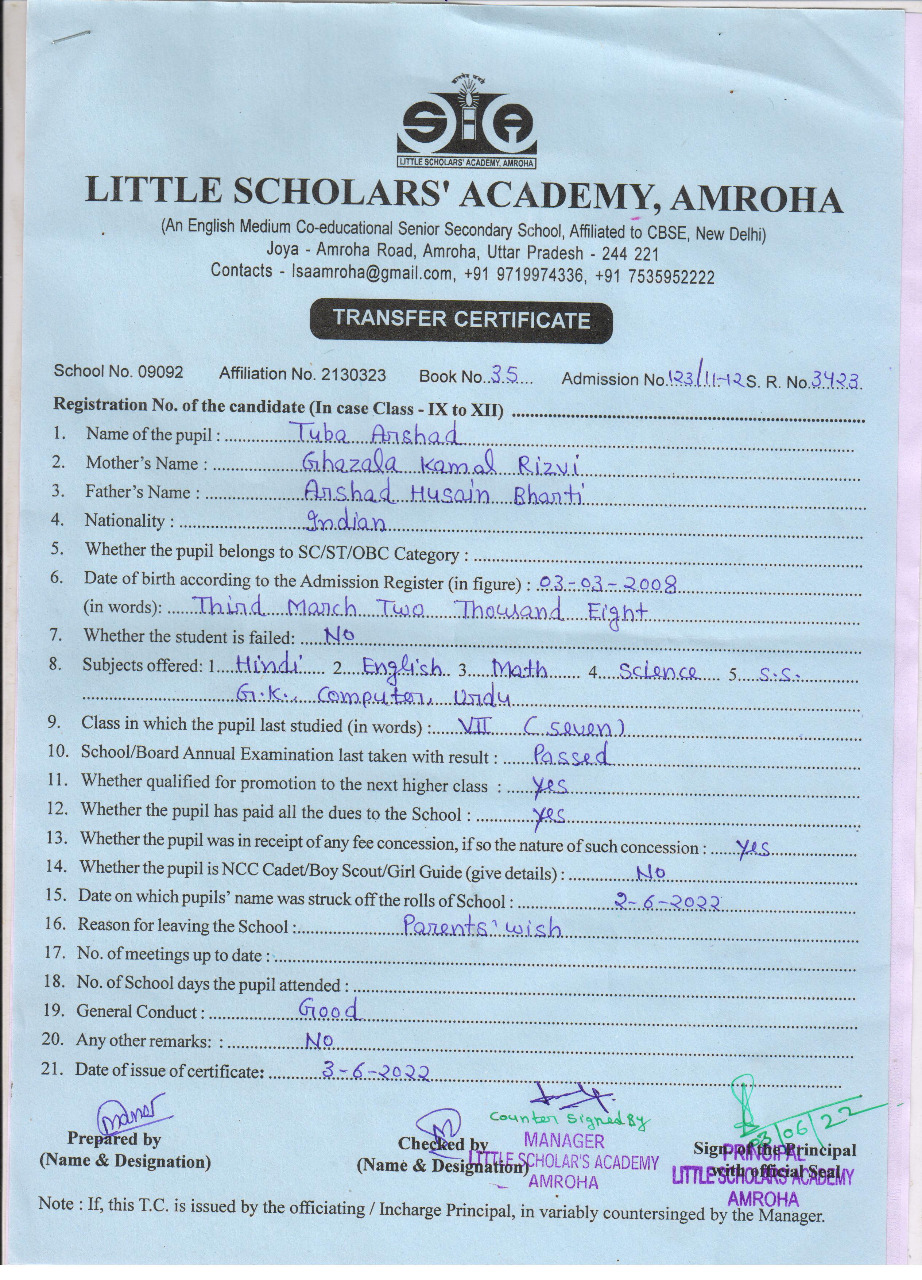 SHA
LITTLE SCHOLARS' ACADEMY, AMROHA
LITTLE SCHOLARS' ACADEMY, AMROHA
(An English Medium Co-educational Senior Secondary School, Affiliated to CBSE, New Delhi)
Joya - Amroha Road, Amroha, Uttar Pradesh - 244 221
Contacts - lsaamroha@gmail.com, +91 9719974336, +91 7535952222
TRANSFER CERTIFICATE
School No. 09092 Affiliation No. 2130323 Book No. 35 Admission No. 123/11-12 S. R. No. 3423
Registration No. of the candidate (In case Class - IX to XII)
1. Name of the pupil : Tuba Arshad
2. Mother's Name : Ghazala Kamal Rizvi
3. Father's Name : Arshad Husain Bharti
4. Nationality : Indian
5. Whether the pupil belongs to SC/ST/OBC Category :
6. Date of birth according to the Admission Register (in figure) : 03-03-2008
(in words): Third March Two Thousand Eight
7. Whether the student is failed: No
8. Subjects offered: 1 Hindi 2. English 3. Math 4. Science 5. S.S.
G.K., Computer, Urdu
9. Class in which the pupil last studied (in words) : VII (seven)
10. School/Board Annual Examination last taken with result : Passed
11. Whether qualified for promotion to the next higher class : yes
12. Whether the pupil has paid all the dues to the School : yes
13. Whether the pupil was in receipt of any fee concession, if so the nature of such concession : yes
14. Whether the pupil is NCC Cadet/Boy Scout/Girl Guide (give details) : No
15. Date on which pupils' name was struck off the rolls of School : 2-6-2022
16. Reason for leaving the School : Parents' wish
17. No. of meetings up to date :
18. No. of School days the pupil attended :
19. General Conduct : Good
20. Any other remarks: : No
21. Date of issue of certificate: 3-6-2022
Counter Signed By
03/06/22
Prepared by Checked by MANAGER Sign of the Principal
PRINCIPAL
(Name & Designation) (Name & Designation) LITTLE SCHOLAR'S ACADEMY with official Seal
LITTLE SCHOLARS ACADEMY
AMROHA AMROHA
Note : If, this T.C. is issued by the officiating / Incharge Principal, in variably countersinged by the Manager.